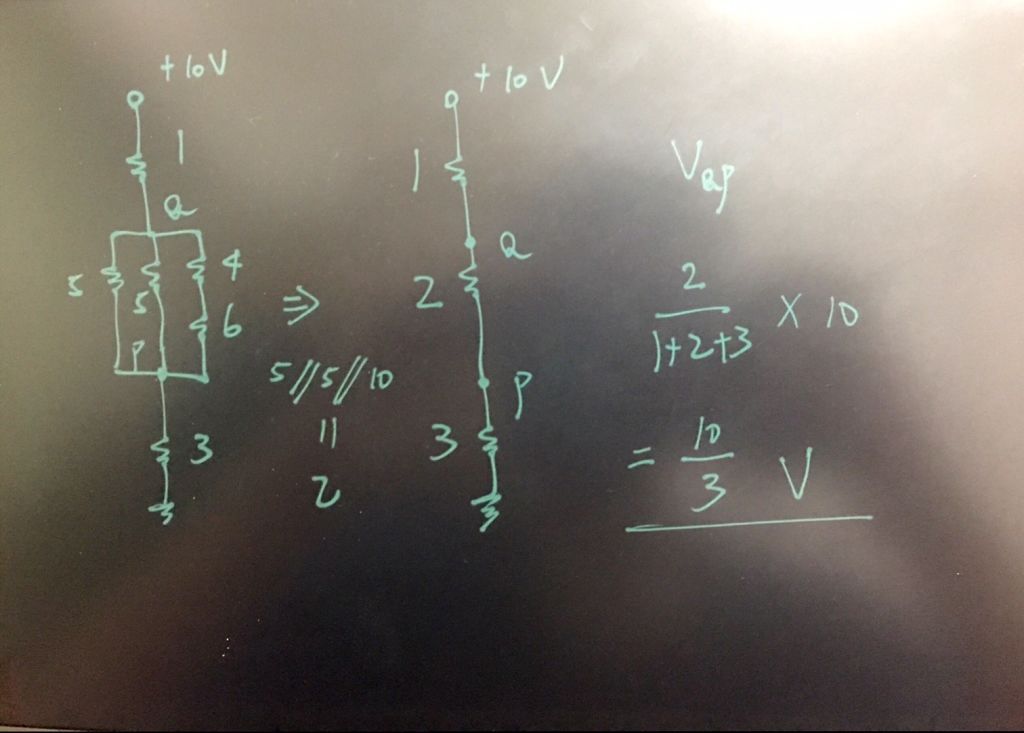 +10V
1
Q
5
5
4
6
P
3
⇒
5//5//10
||
2
+10V
1
Q
2
P
3
VQP
2
1+2+3
× 10
= 10
3
V